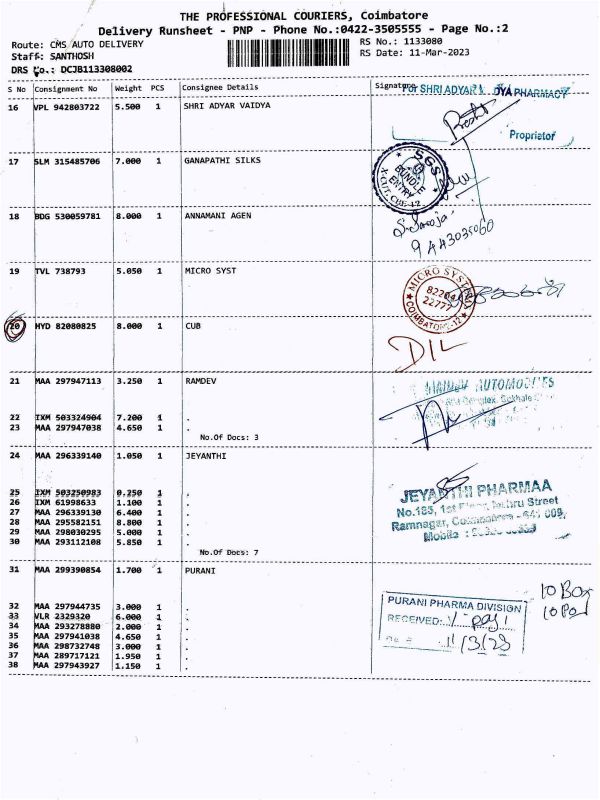 THE PROFESSIONAL COURIERS, Coimbatore
Delivery Runsheet - PNP - Phone No.:0422-3505555 - Page No.:2
Route: CMS AUTO DELIVERY RS No.: 1133080
Staff: SANTHOSH RS Date: 11-Mar-2023
DRS No.: DCJB113308002
S No Consignment No Weight PCS Consignee Details Signature
For SHRI ADYAR PHARMACY
16 VPL 942803722 5.500 1 SHRI ADYAR VAIDYA
Proprietor
17 SLM 315485706 7.000 1 GANAPATHI SILKS
SGS BUNDLE ENTRY X-CUT, CBE-12
18 BDG 530059781 8.000 1 ANNAMANI AGEN
S. Saroja
9443035060
19 TVL 738793 5.050 1 MICRO SYST
MICRO SYSTEM 82204 22777 COIMBATORE-12
20 HYD 82080825 8.000 1 CUB
DIL
21 MAA 297947113 3.250 1 RAMDEV
AUTOMOBILES
22 IXM 503324904 7.200 1 .
23 MAA 297947038 4.650 1 .
No.Of Docs: 3
24 MAA 296339140 1.050 1 JEYANTHI
JEYANTHI PHARMAA
No.185, 1st Floor, Nehru Street
Ramnagar, Coimbatore - 641 009.
Mobile :
25 IXM 503250983 0.250 1 .
26 IXM 61998633 1.100 1 .
27 MAA 296339130 6.400 1 .
28 MAA 295582151 8.800 1 .
29 MAA 298030295 5.000 1 .
30 MAA 293112108 5.850 1 .
No.Of Docs: 7
31 MAA 299390854 1.700 1 PURANI
10 Box
PURANI PHARMA DIVISION
RECEIVED:
11/3/23
32 MAA 297944735 3.000 1 .
33 VLR 2329320 6.000 1 .
34 MAA 293278880 2.000 1 .
35 MAA 297941038 4.650 1 .
36 MAA 298732748 3.000 1 .
37 MAA 289717121 1.950 1 .
38 MAA 297943927 1.150 1 .